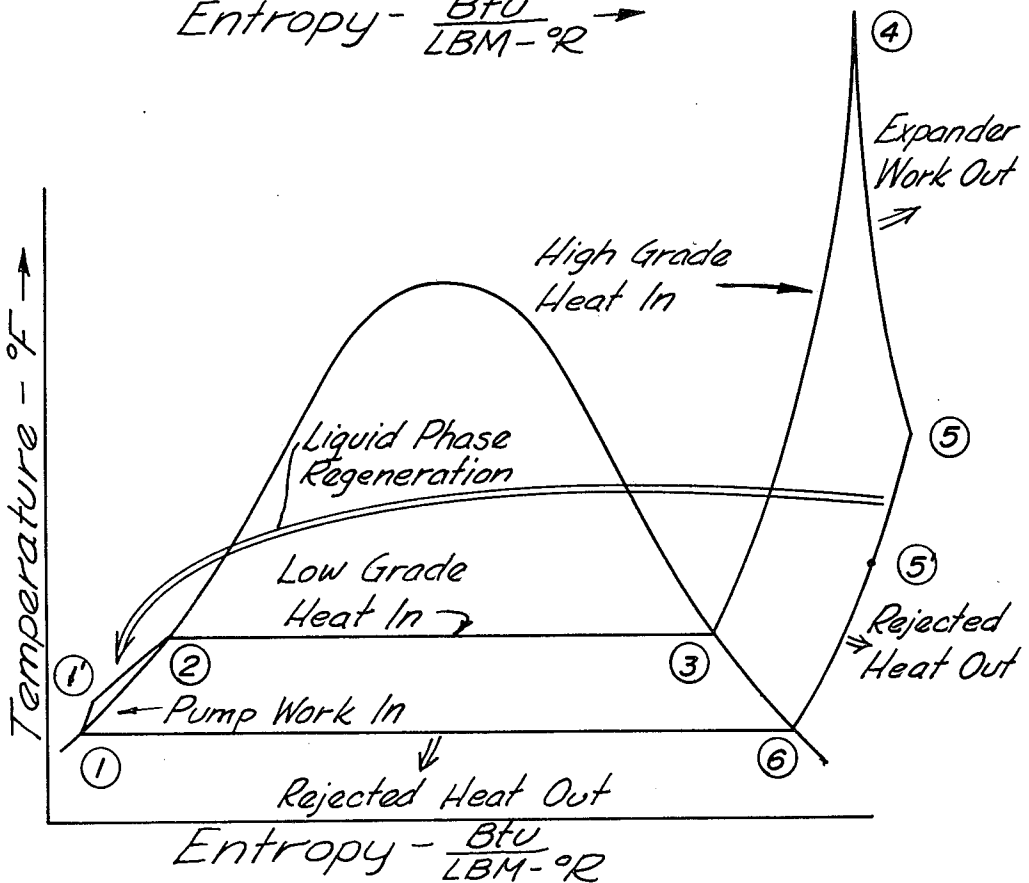 Entropy - Btu
LBM - °R
4
Expander
Work Out
High Grade
Heat In
Temperature - °F
Liquid Phase
Regeneration
5
Low Grade
Heat In
5'
Rejected
Heat Out
1'
2
3
Pump Work In
1
6
Rejected Heat Out
Entropy - Btu
LBM - °R